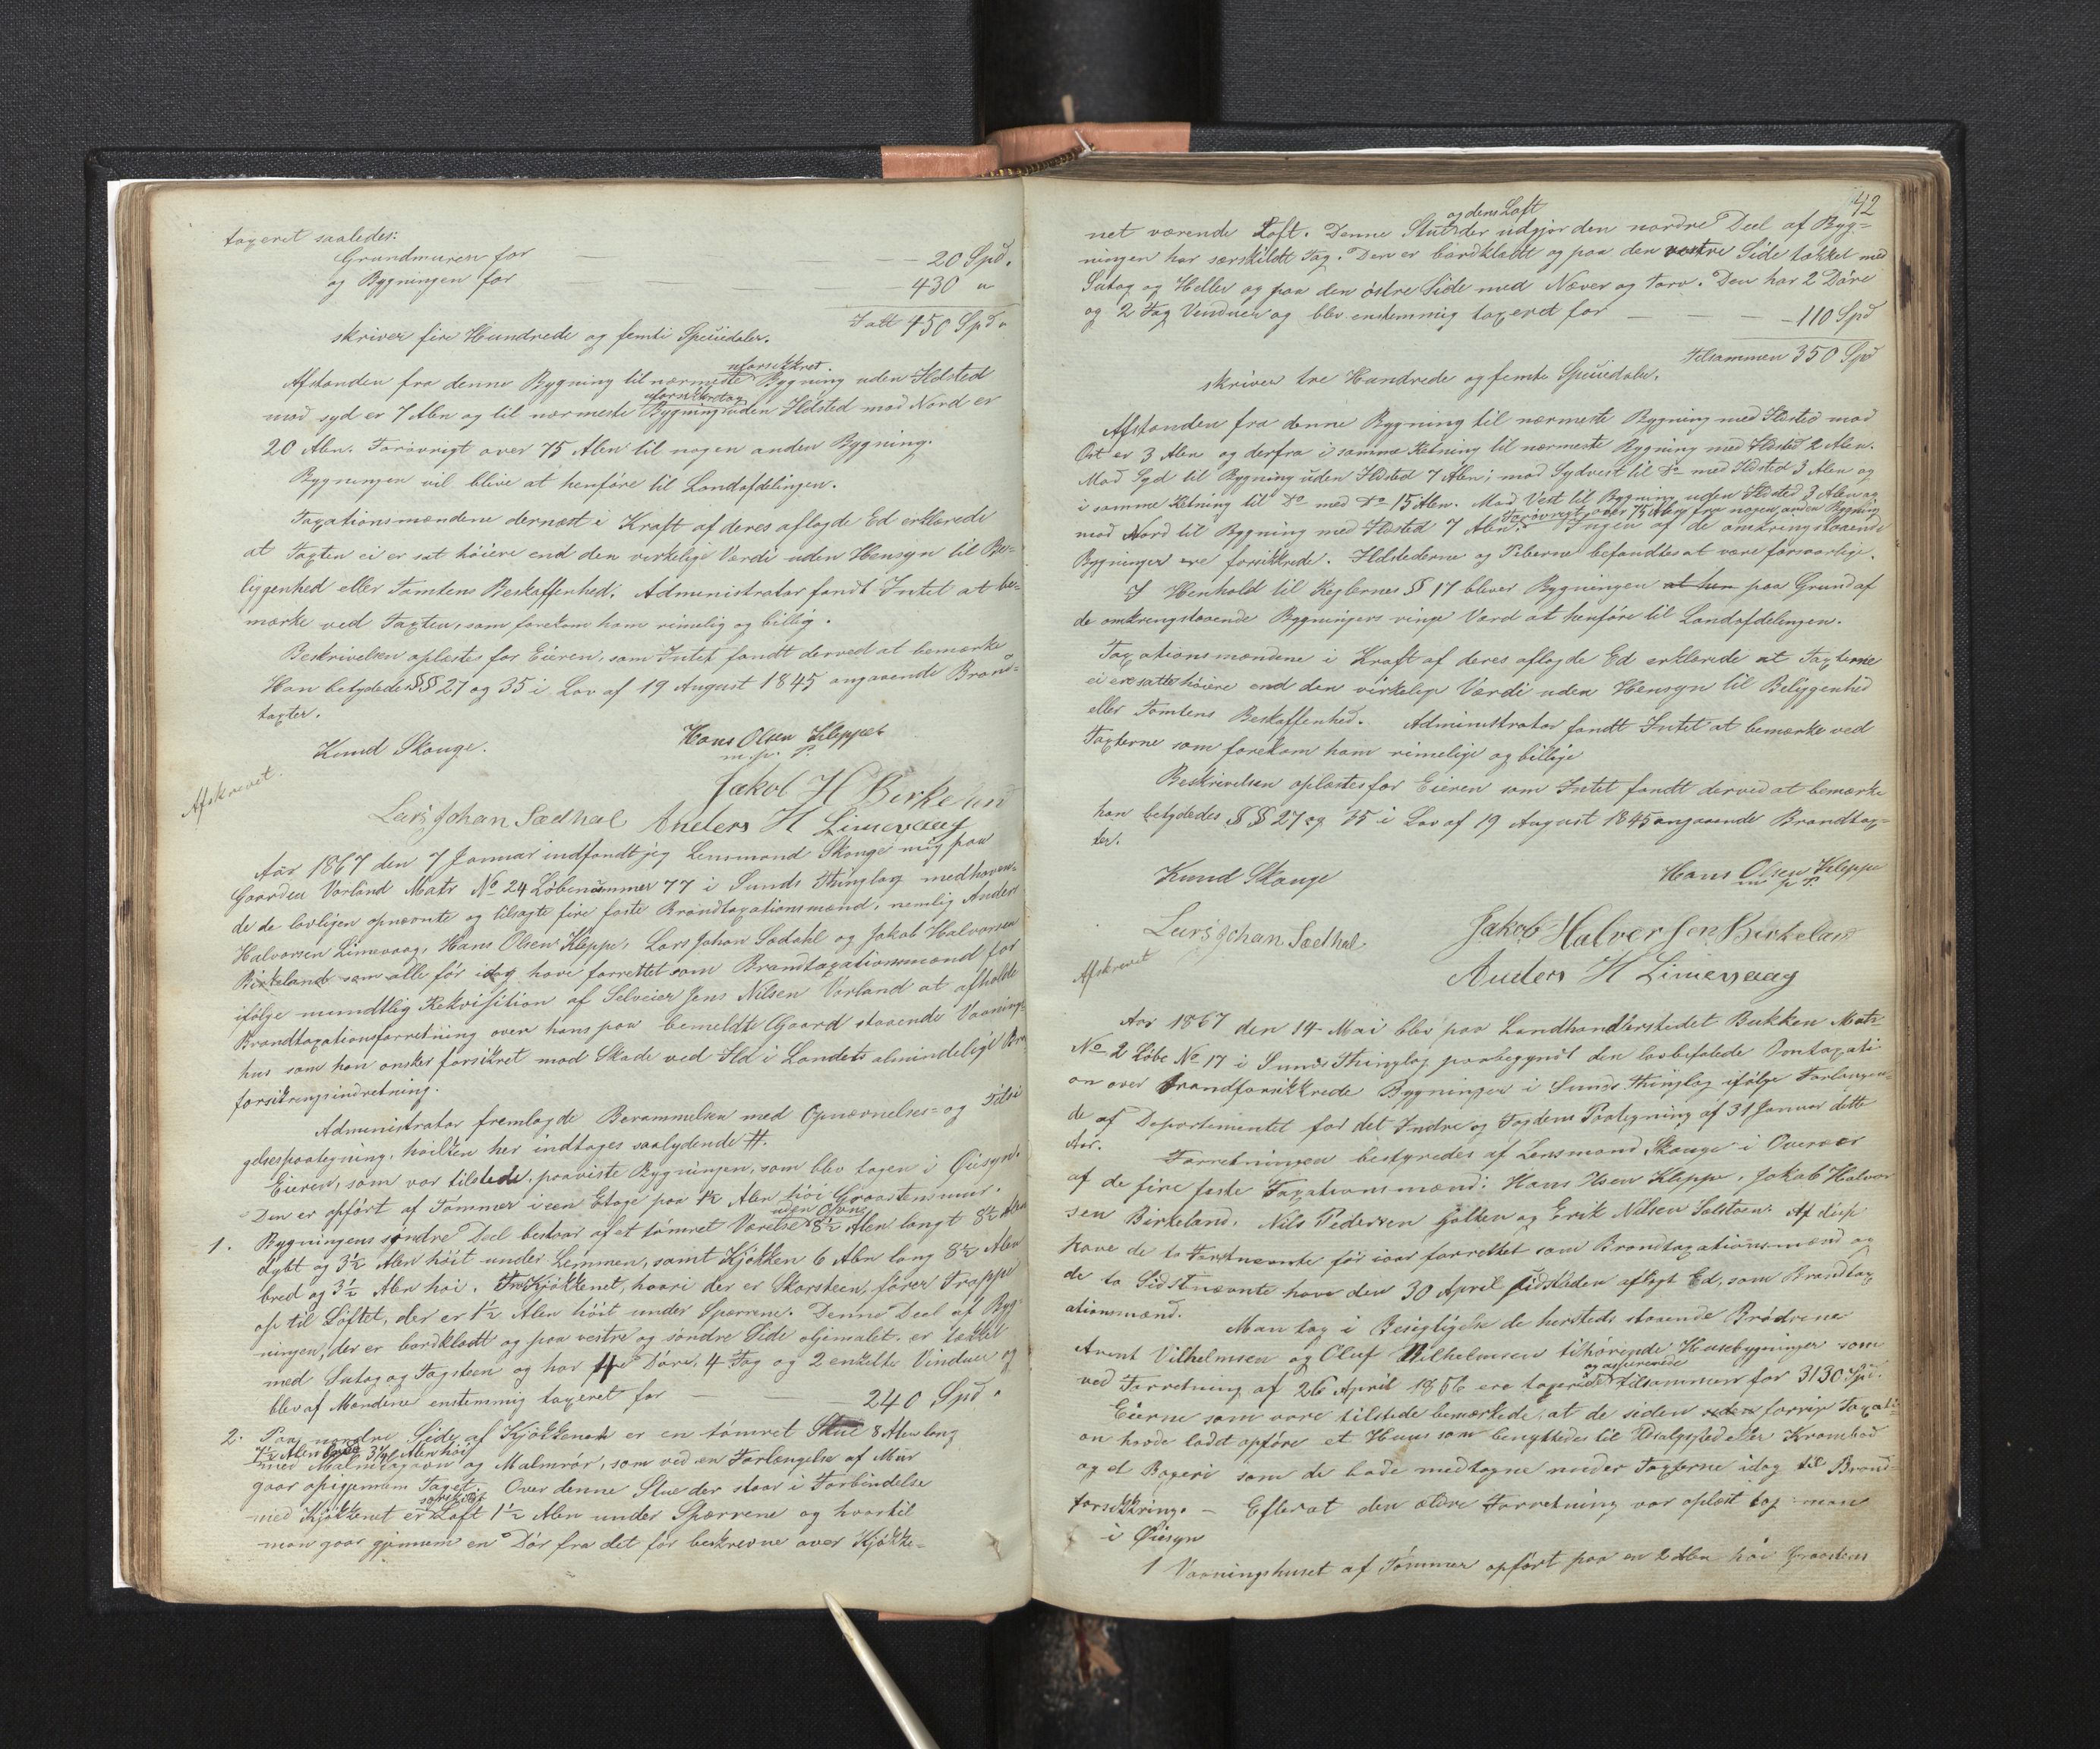 taxeret saaledes:
Grundmuren for — — — 20 Spd.
og Bygningen for — — — 430 "
Ialt 450 Spd.
skriver fire Hundrede og femti Speciedaler.
uforsikkret.
Afstanden fra denne Bygning til nærmeste Bygning uden Ildsted
mod syd er 7 Alen og til nærmeste Bygning uden Ildsted mod Nord er
20 Alen. Forøvrigt over 75 Alen til nogen anden Bygning.
Bygningen vil blive at henføre til Landafdelingen.
Taxationsmændene dernæst i Kraft af deres aflagde Ed erklærede
at Taxten ei er sat høiere end den virkelige Værdi uden Hensyn til Be-
liggenhed eller Tomtens Beskaffenhed. Administrator fandt Intet at be-
mærke ved Taxten, som forekom ham rimelig og billig.
Beskrivelsen oplæstes for Eieren, som Intet fandt derved at bemærke
Han betydedes §§ 27 og 35 i Lov af 19 August 1845 angaaende Brand-
taxter.
Knud Skauge.
Hans Olsen Kleppe
m. p. P.
Afskrevet.
Jakob H Birkeland
Lars Johan Sædhal Anders H Limevaag
Aar 1867 den 7 Januar indfandt jeg Lensmand Skauge mig paa
Gaarden Vorland Matr No 24 Løbenummer 77 i Sunds Thinglag medhaven-
de de lovligen opnævnte og tilsagte fire faste Brandtaxationsmænd, nemlig Anders
Halvorsen Limevaag, Hans Olsen Kleppe, Lars Johan Sædahl og Jakob Halvorsen
Birkeland som alle før idag have forrettet som Brandtaxationsmænd for
ifølge mundtlig Rekvisition af Selveier Jens Nilsen Vorland at afholde
Brandtaxationsforretning over hans paa bemeldte Gaard staaende Vaanings-
hus som han ønsker forsikret mod Skade ved Ild i Landets almindelige Bra
forsikringsindretning.
Administrator fremlagde Berammelsen med Opnævnelses- og Tilsi
gelsespaategning, hvilken her indtages saalydende #.
Eieren, som var tilstede, paaviste Bygningen, som blev tagen i Øiesyn.
Den er opført af Tømmer i een Etage paa 1½ Alen høi Graastensmur.
uden Ovne
1. Bygningens søndre Deel bestaar af et tømret Værelse 8½ Alen langt 8½ Alen
dybt og 3½ Alen høit under Lemmen, samt Kjøkken 6 Alen lang 8½ Alen
bred og 3½ Alen høi. Fra Kjøkkenet, hvori der er Skorsteen, fører Trappe
op til Loftet, der er 1½ Alen høit under Sperrene. Denne Deel af Byg-
ningen, der er bordklædt og paa vestre og søndre Side oljemalet, er tækket
med Sutag og Tagsteen og har fire Døre, 4 Fag og 2 enkelte Vinduer og
blev af Mændene enstemmig taxeret for — — 240 Spd.
2. Paa nordre Side af Kjøkkenet er en tømret Stue 8 Alen lang
7½ Alen bred 3¼ Alen høi
med Malmkaovn og Malmrør, som ved en Forlængelse af Mur
gaar opigjennem Taget. Over denne Stue der staar i Forbindelse
med Kjøkkenet er Loft 1½ Alen under Sperrene og hvortil
man gaar gjennem en Dør fra det før beskrevne over Kjøkke-
42
og dens Loft
net værende Loft. Denne Stue der udgjør den nordre Deel af Byg-
ningen har særskildt Tag. Den er bordklædt og paa den vestre Side tækket med
Sutag og Heller og paa den østre Side med Næver og Torv. Den har 2 Døre
og 2 Fag Vinduer og blev enstemmig taxeret for — — — 110 Spd
Tilsammen 350 Spd
skriver tre Hundrede og femti Speciedaler.
Afstanden fra denne Bygning til nærmeste Bygning med Ildsted mod
Øst er 3 Alen og derfra i samme Retning til nærmeste Bygning med Ildsted 2 Alen.
Mod Syd til Bygning uden Ildsted 7 Alen; mod Sydvest til Do med Ildsted 3 Alen og
i samme Retning til Do med Do 15 Alen. Mod Vest til Bygning uden Ildsted 3 Alen og
Forøvrigt over 75 Alen fra nogen anden Bygning
mod Nord til Bygning med Ildsted 7 Alen. Ingen af de omkringstaaende
Bygninger ere forsikkrede. Ildstederne og Piberne befandtes at være forsvarlige.
I Henhold til Reglernes § 17 bliver Bygningen at hen paa Grund af
de omkringstaaende Bygningers ringe Værd at henføre til Landafdelingen.
Taxationsmændene i Kraft af deres aflagde Ed erklærede at Taxterne
ei ere satte høiere end den virkelige Værdi uden Hensyn til Beliggenhed
eller Tomtens Beskaffenhed. Administrator fandt Intet at bemærke ved
Taxterne som forekom ham rimelige og billige
Beskrivelsen oplæstes for Eieren som Intet fandt derved at bemærke
han betydedes §§ 27 og 35 i Lov af 19 August 1845 angaaende Brandtax-
ter.
Knud Skauge
Hans Olsen Kleppe
m p P.
Lars Johan Sædhal
Jakob Halversen Birkeland
Afskrevet
Anders H Limevaag
Aar 1867 den 14 Mai blev paa Landhandlerstedet Bukken Matr
No 2 Løbe No 17 i Sunds Thinglag paabegyndt den lovbefalede Omtaxati
on over brandforsikkrede Bygninger i Sunds Thinglag ifølge Forlangen-
de af Departementet for det Indre og Fogdens Paategning af 31 Januar dette
Aar.
Forretningen bestyredes af Lensmand Skauge i Overvær
af de fire faste Taxationsmænd: Hans Olsen Kleppe, Jakob Halvor
sen Birkeland, Nils Pedersen Golten og Erik Nilsen Selstøen. Af disse
have de to Førstnævnte før iaar forrettet som Brandtaxationsmænd og
de to Sidstnævnte have den 30 April sidstleden aflagt Ed, som Brandtax
ationsmænd.
Man tog i Besigtigelse de hersteds staaende Brødrene
Arent Vilhelmsen og Oluf Wilhelmsen tilhørende Husebygninger som
og assurerede
ved Forretning af 26 April 1856 ere taxerede tilsammen for 3130 Spd.
Eierne som vare tilstede bemærkede, at de siden forrige Taxati-
on havde ladet opføre et Huus som benyttedes til Udsalgssted eller Krambod
og et Bageri som de bade medtagne under Taxterne idag til Brand-
forsikkring. — Efterat den ældre Forretning var oplæst tog man
i Øiesyn
1 Vaaningshuset af Tømmer opført paa en 2 Alen høi Graastens